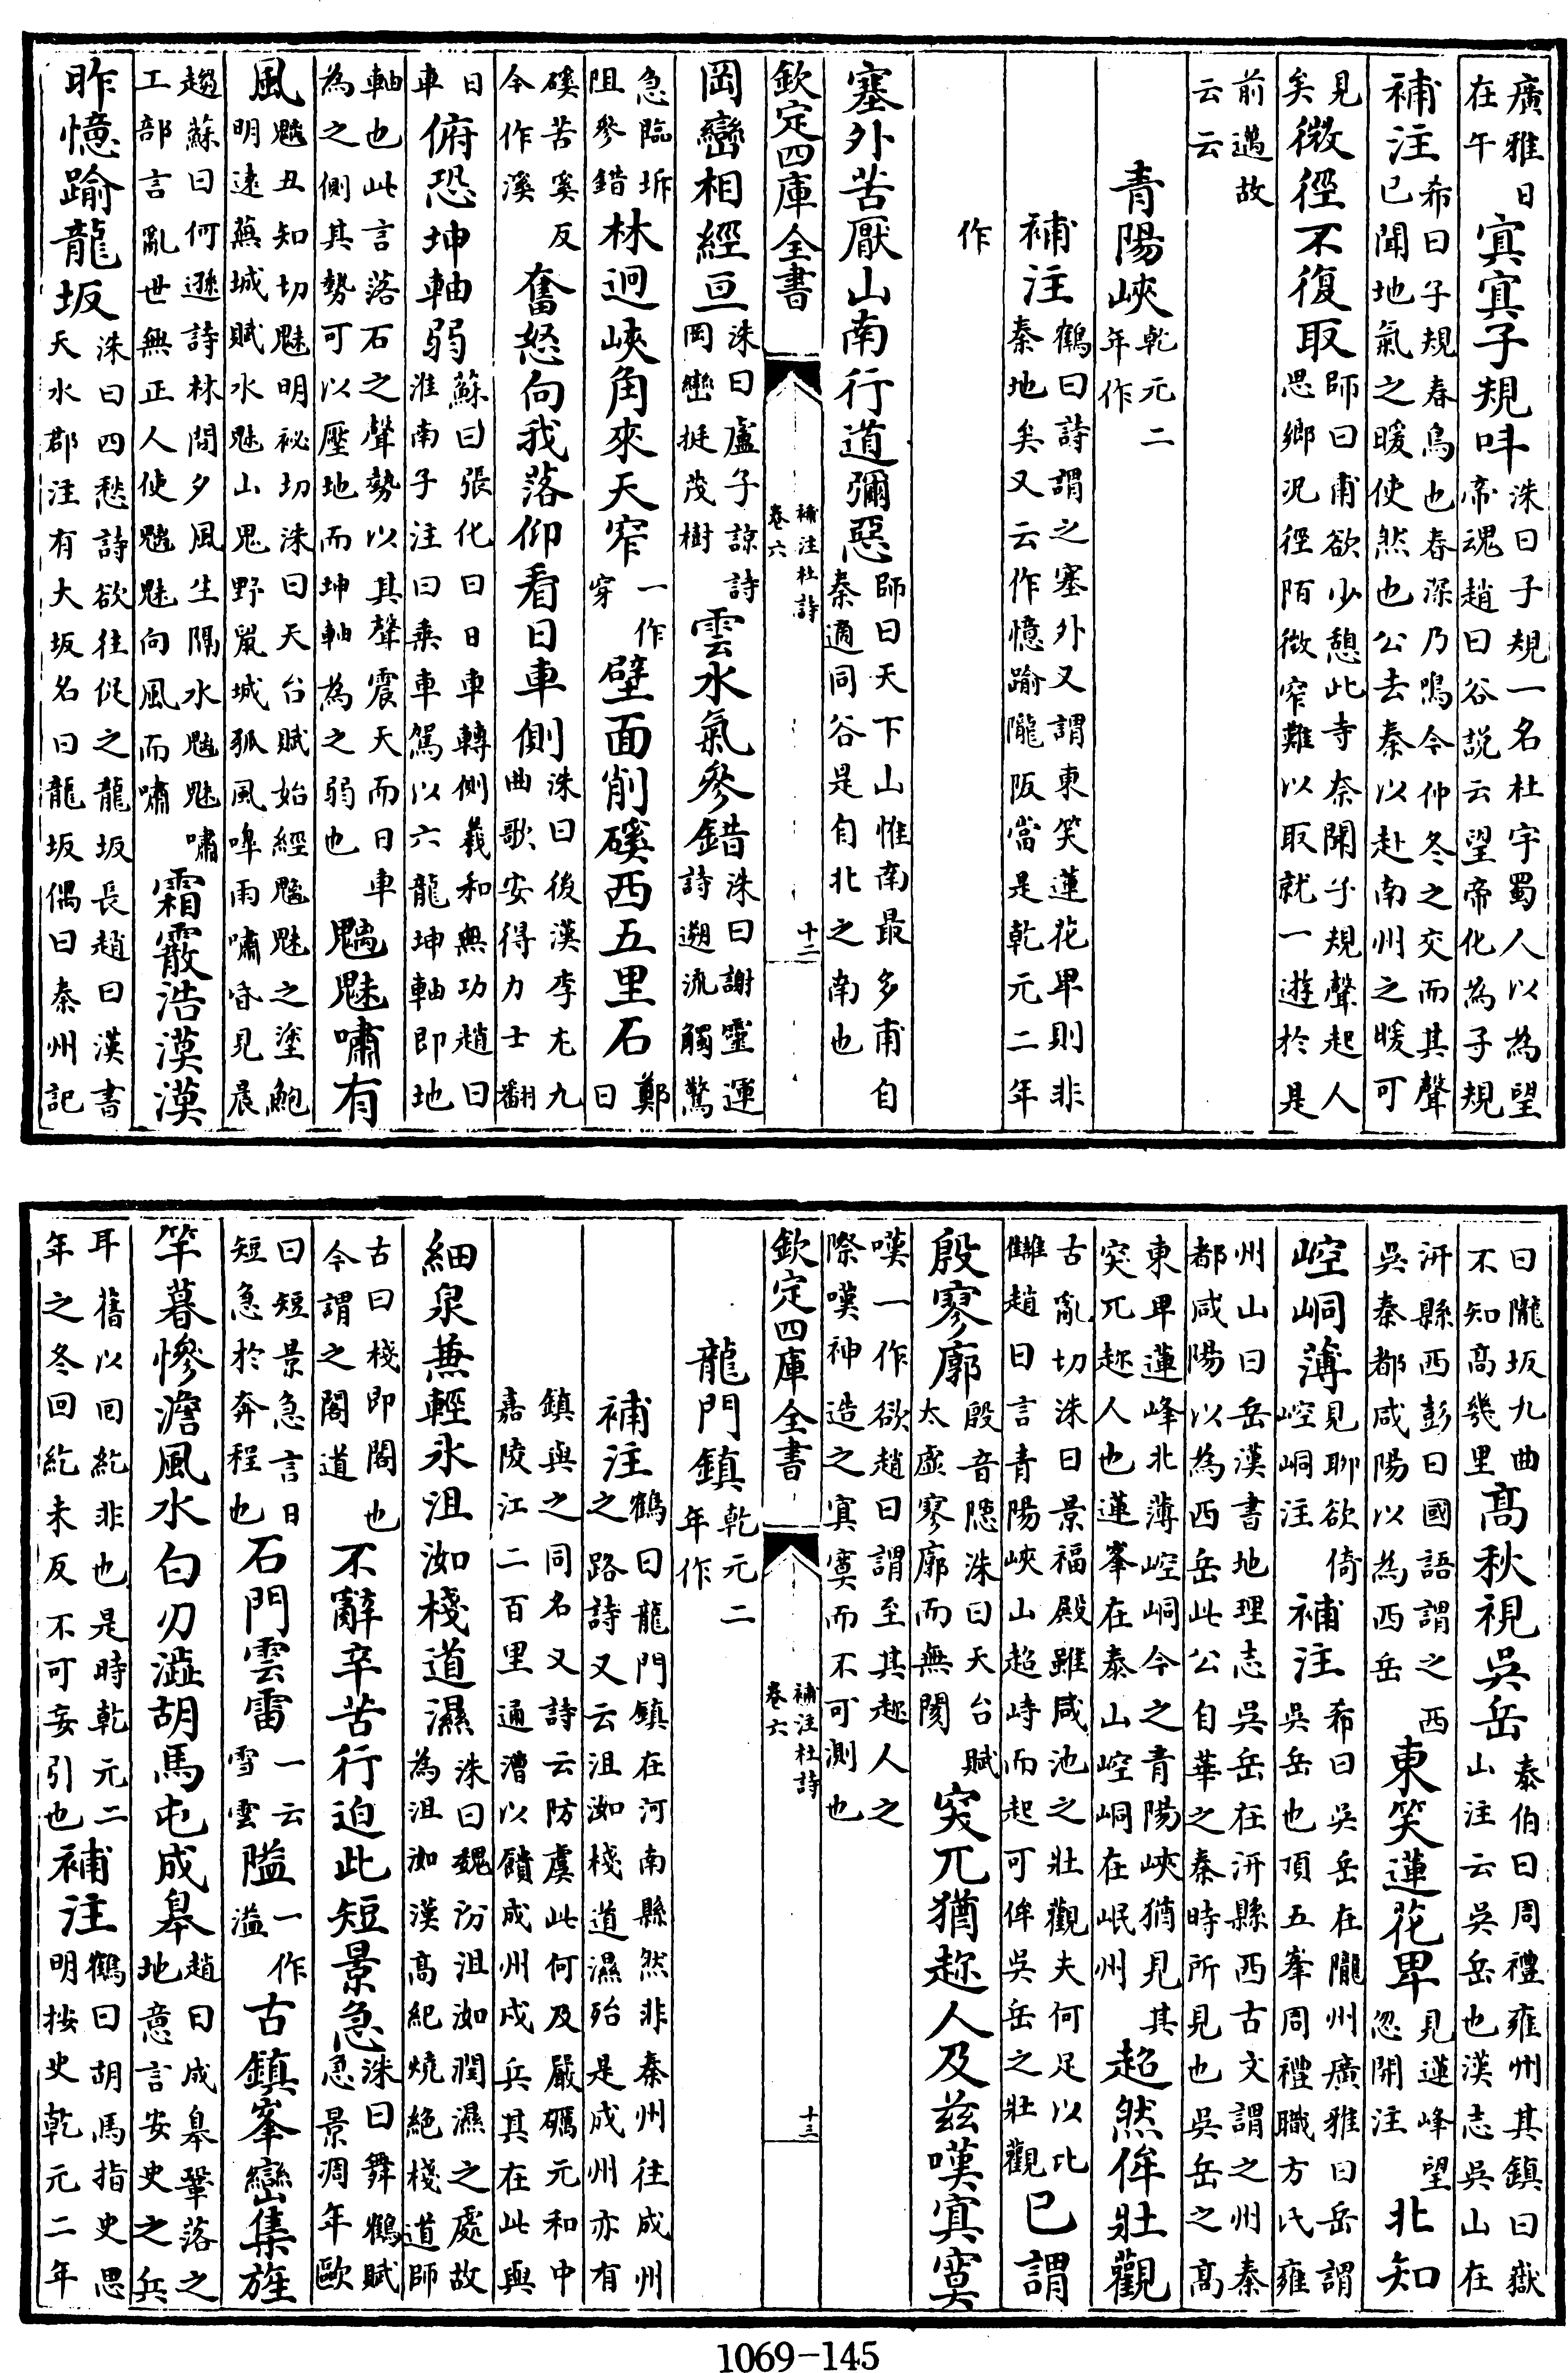 廣雅曰在午㝠㝠子規呌洙曰子規一名杜宇蜀人以為望帝魂趙曰谷説云望帝化為子規
補注希曰子規春鳥也春深乃鳴今仲冬之交而其聲已聞地氣之暖使然也公去秦以赴南州之暖可
見矣微徑不復取師曰甫欲少憩此寺奈聞子規聲起人思鄉況徑陌微窄難以取就一遊於是
前邁故云云
青陽峽乾元二年作
補注鶴曰詩謂之塞外又謂東笑蓮花卑則非秦地矣又云作憶踰隴阪當是乾元二年
作
塞外苦厭山南行道彌惡師曰天下山惟南最多甫自秦適同谷是自北之南也
欽定四庫全書 補注杜詩 卷六 十二
岡巒相經亘洙曰盧子諒詩岡巒挺茂樹雲水氣參錯洙曰謝靈運詩遡流觸驚
急臨圻阻參錯林迥峽角來天窄一作穿壁面削磎西五里石鄭曰
磎苦奚反今作溪奮怒向我落仰看日車側洙曰後漢李尤九曲歌安得力士翻
日車俯恐坤軸弱蘇曰張化曰日車轉側羲和無功趙曰淮南子注曰乘車駕以六龍坤軸即地
軸也此言落石之聲勢以其聲震天而日車為之側其勢可以壓地而坤軸為之弱也魑魅嘯有
風魑丑知切魅明祕切洙曰天台賦始經魑魅之塗鮑明逺蕪城賦水魅山鬼野鼠城狐風嘷雨嘯昏見晨
趨蘇曰何遜詩林間夕風生隔水魑魅嘯工部言亂世無正人使魑魅向風而嘯霜霰浩漠漠
昨憶踰龍坂洙曰四愁詩欲往從之龍坂長趙曰漢書天水郡注有大坂名曰龍坂偶曰秦州記
曰隴坂九曲不知高幾里高秋視吳岳泰伯曰周禮雍州其鎮曰嶽山注云吳岳也漢志吳山在
汧縣西彭曰國語謂之西吳秦都咸陽以為西岳東笑蓮花卑見蓮峰望忽開注北知
崆峒薄見聊欲倚崆峒注補注希曰吳岳在隴州廣雅曰岳謂吳岳也頂五峯周禮職方氏雍
州山曰岳漢書地理志吳岳在汧縣西古文謂之州秦都咸陽以為西岳此公自華之秦時所見也吳岳之高
東卑蓮峰北薄崆峒今之青陽峽猶見其突兀趂人也蓮峯在泰山崆峒在岷州超然侔壯觀
古亂切洙曰景福殿雖咸池之壯觀夫何足以比讎趙曰言青陽峽山超峙而起可侔吳岳之壯觀已謂
殷寥廓殷音隱洙曰天台賦太虛寥廓而無閡突兀猶趂人及兹嘆㝠寞
嘆一作欲趙曰謂至其趂人之際嘆神造之㝠寞而不可測也
欽定四庫全書 補注杜詩 卷六 十三
龍門鎮乾元二年作
補注鶴曰龍門鎮在河南縣然非秦州往成州之路詩又云沮洳棧道濕殆是成州亦有
鎮與之同名又詩云防虞此何及嚴礪元和中嘉陵江二百里通漕以饋成州戍兵其在此與
細泉兼輕氷沮洳棧道濕洙曰魏汾沮洳潤濕之處故為沮洳漢高紀燒絶棧道師
古曰棧即閣也今謂之閣道不辭辛苦行迫此短景急洙曰舞鶴賦急景凋年歐
曰短景急言日短急於奔程也石門雲雷一云雪雲隘一作溢古鎮峯巒集旌
竿暮慘澹風水白刃澁胡馬屯成臯趙曰成臯鞏落之地意言安史之兵
耳舊以回紇非也是時乾元二年之冬回紇未反不可妄引也補注鶴曰胡馬指史思明按史乾元二年
1069-145